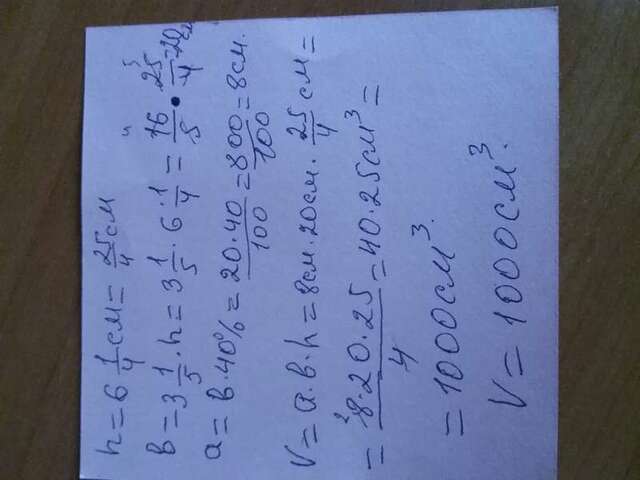 h = 6 1/4 см = 25/4 см
b = 3 1/5 · h = 3 1/5 · 6 · 1/4 = 16/5 · 25/4 = 20см
4 5
a = b · 40% = 20·40/100 = 800/100 = 8см.
V = a·b·h = 8см·20см · 25/4 см =
= 8·20·25/4 = 40·25см³ =
2
= 1000см³.
V = 1000см³.